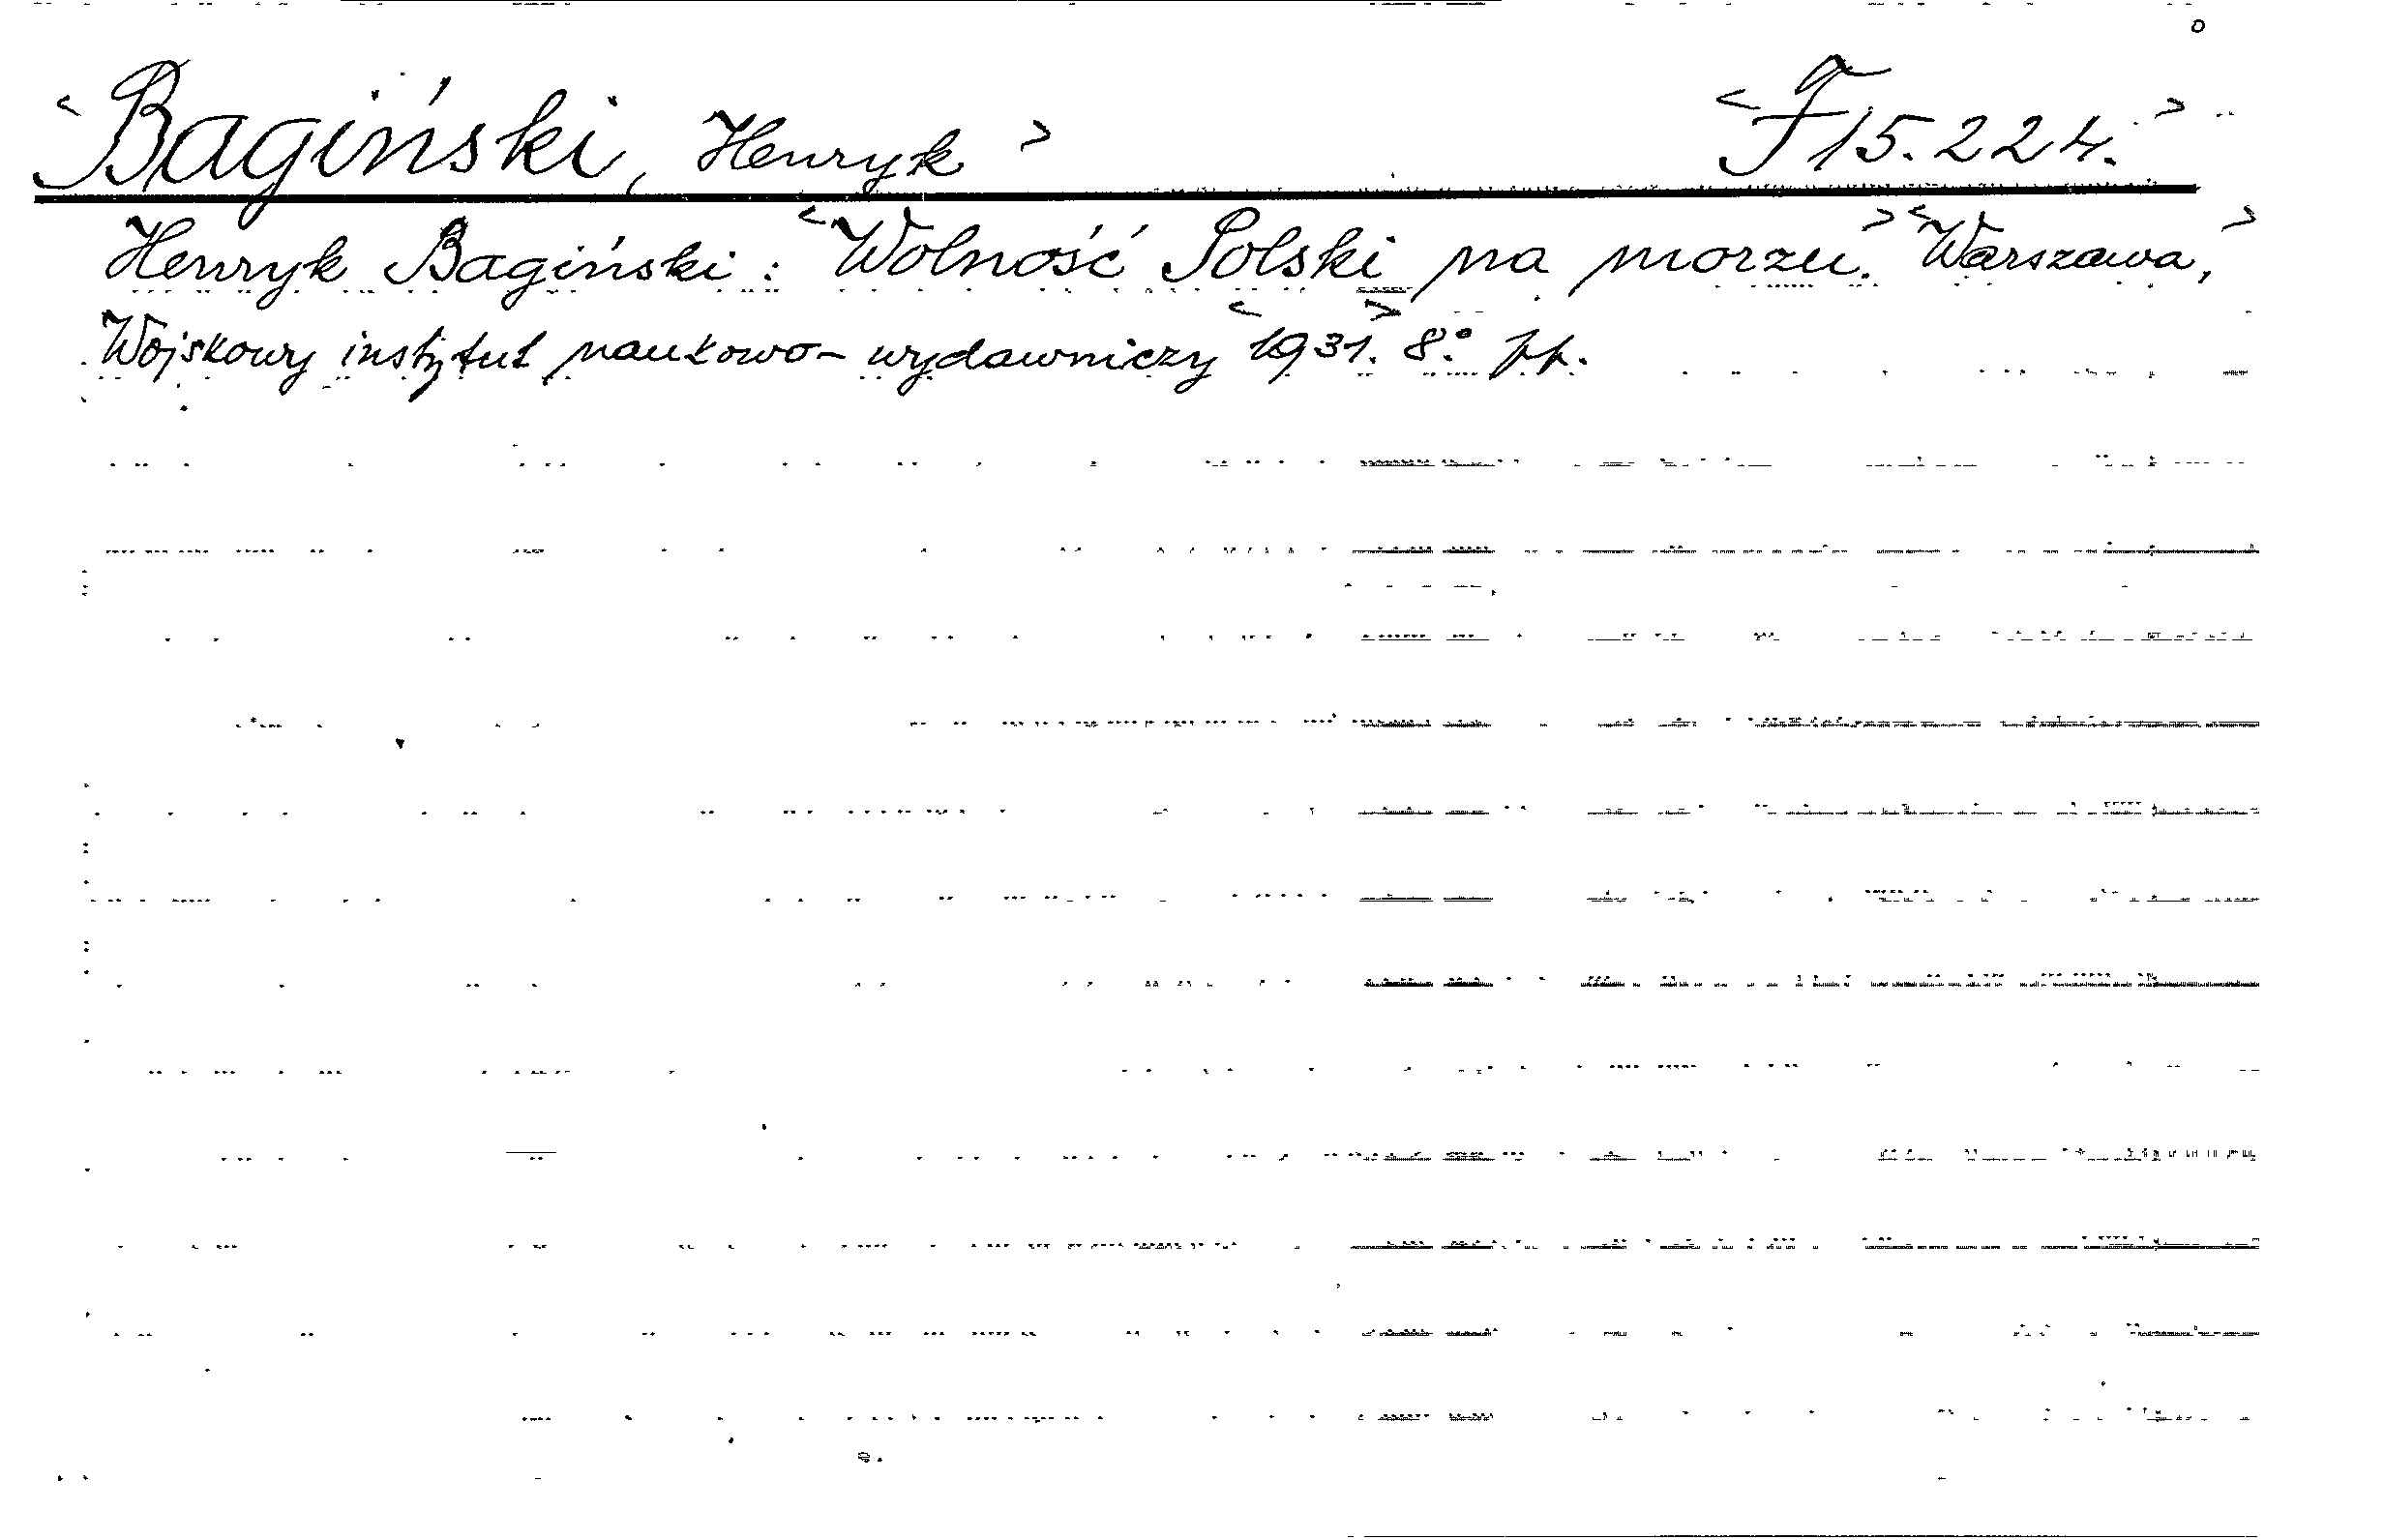 <Bagiński, Henryk> <F 15.224.>
Henryk Bagiński: <Wolność Polski na morzu.> <Warszawa,>
Wojskowy instytut naukowo-wydawniczy <1931.> 8.° pp.